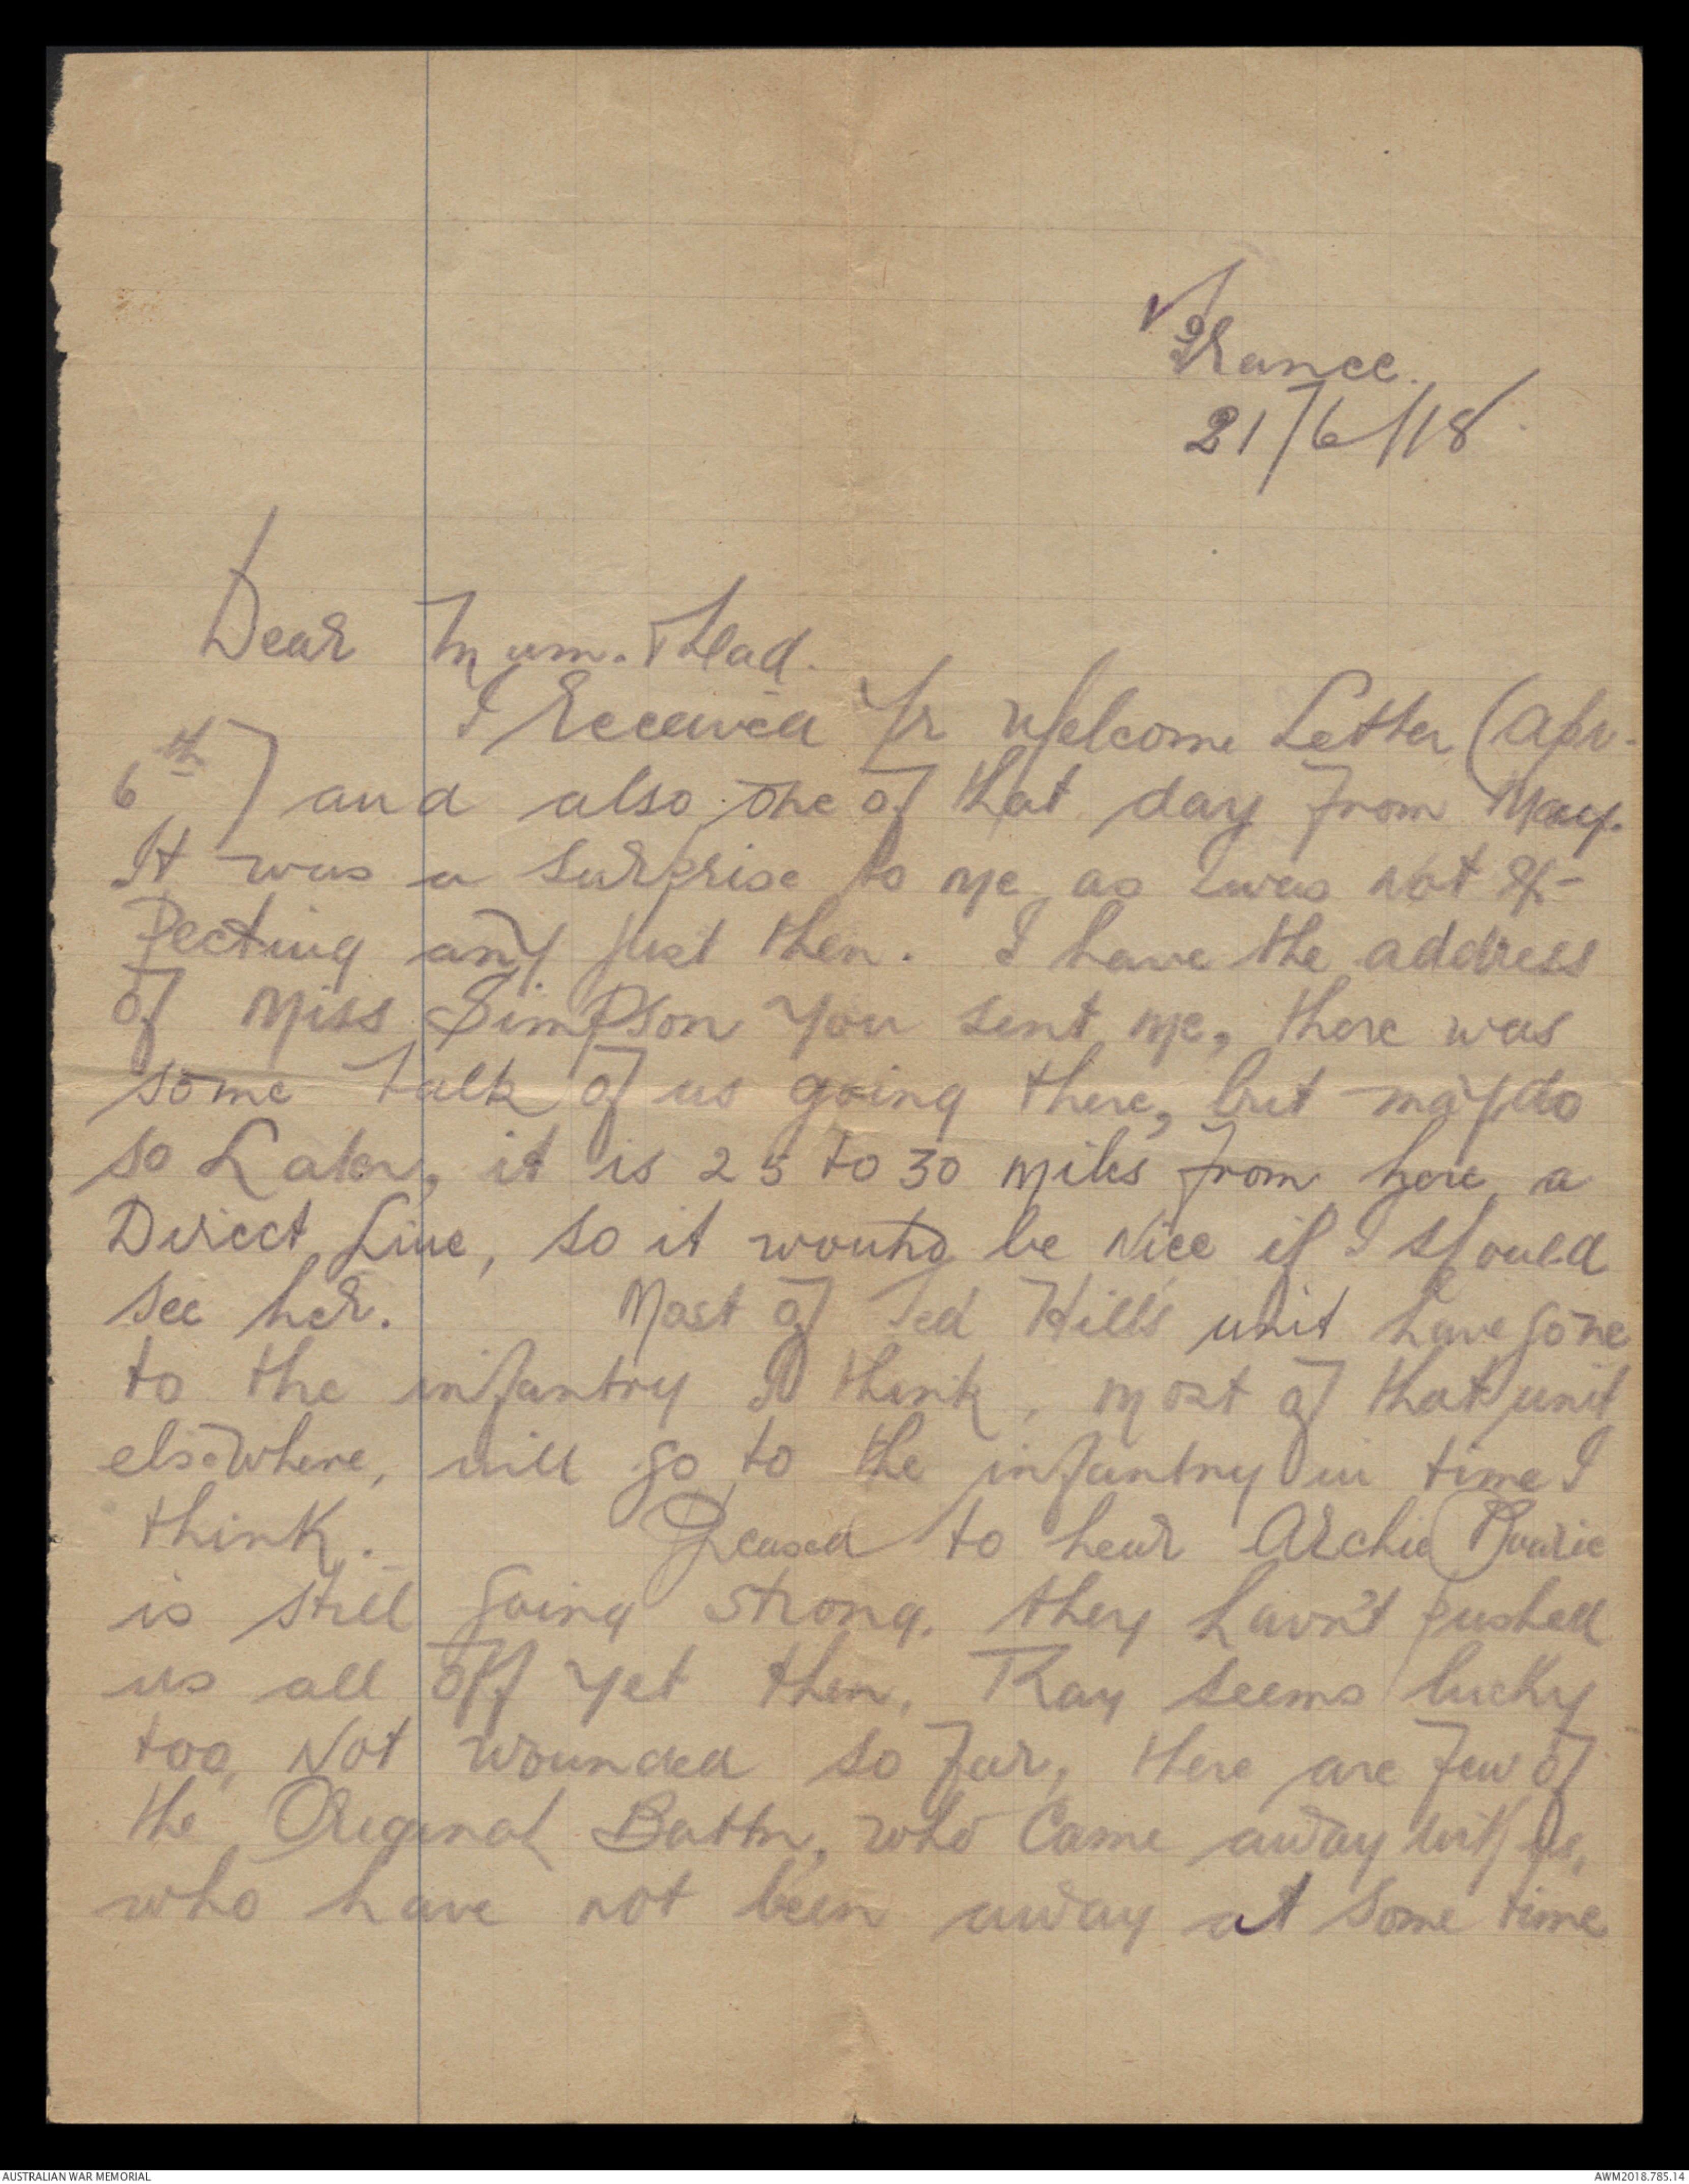 France.
21/6/18
Dear Mum. & Dad.
I Received Yr Welcome Letter (Apr.
6th) and also one of that day from May.
It was a surprise to me, as I was not ex-
pecting any just then. I have the address
of Miss Simpson you sent me, there was
some talk of us going there, but may do
so Later, it is 25 to 30 miles from here, a
Direct Line, so it would be nice if I should
see her. Most of Ted Hill's unit have gone
to the infantry I think, most of that unit
elsewhere, will go to the infantry in time I
think. Pleased to hear Archie
is still going strong. they havn't pushed
us all off yet then, Ray seems lucky
too, not wounded so far, there are few of
the Original Battn, who came away with us,
who have not been away at some time
AUSTRALIAN WAR MEMORIAL
AWM2018.785.14